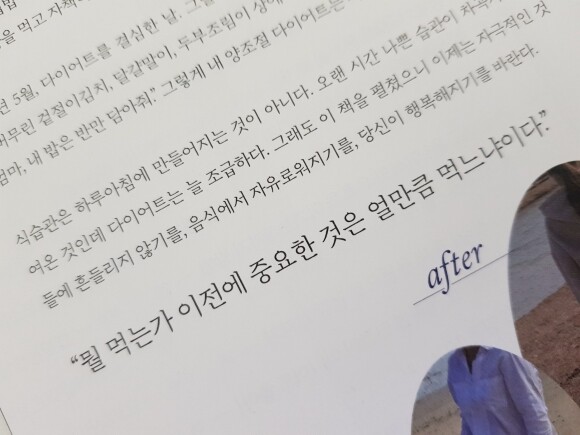 을 먹고 자책
5월, 다이어트를 결심한 날, 그날
버무린 겉절이김치, 달걀말이, 두부조림이 상에
엄마, 내 밥은 반만 담아줘.” 그렇게 내 양조절 다이어트는
식습관은 하루아침에 만들어지는 것이 아니다. 오랜 시간 나쁜 습관이 차곡
여온 것인데 다이어트는 늘 조급하다. 그래도 이 책을 펼쳤으니 이제는 자극적인 것
들에 흔들리지 않기를, 음식에서 자유로워지기를, 당신이 행복해지기를 바란다.
“뭘 먹는가 이전에 중요한 것은 얼만큼 먹느냐이다.”
after